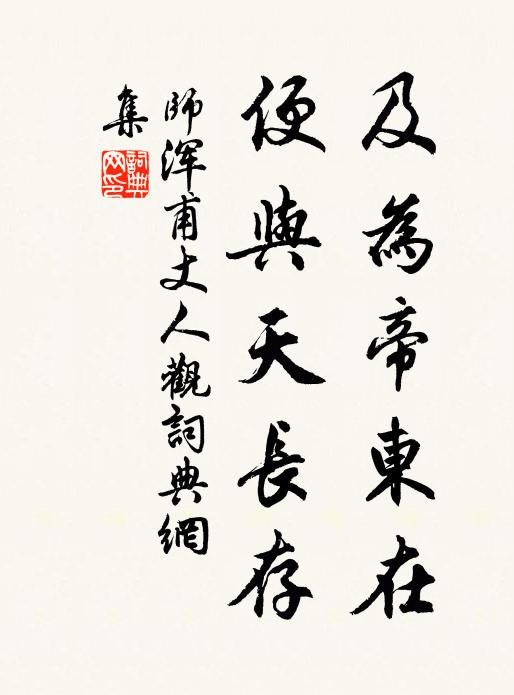 及為帝東在
便與天長存
師渾甫丈人觀詞典網
集
詞典
网印